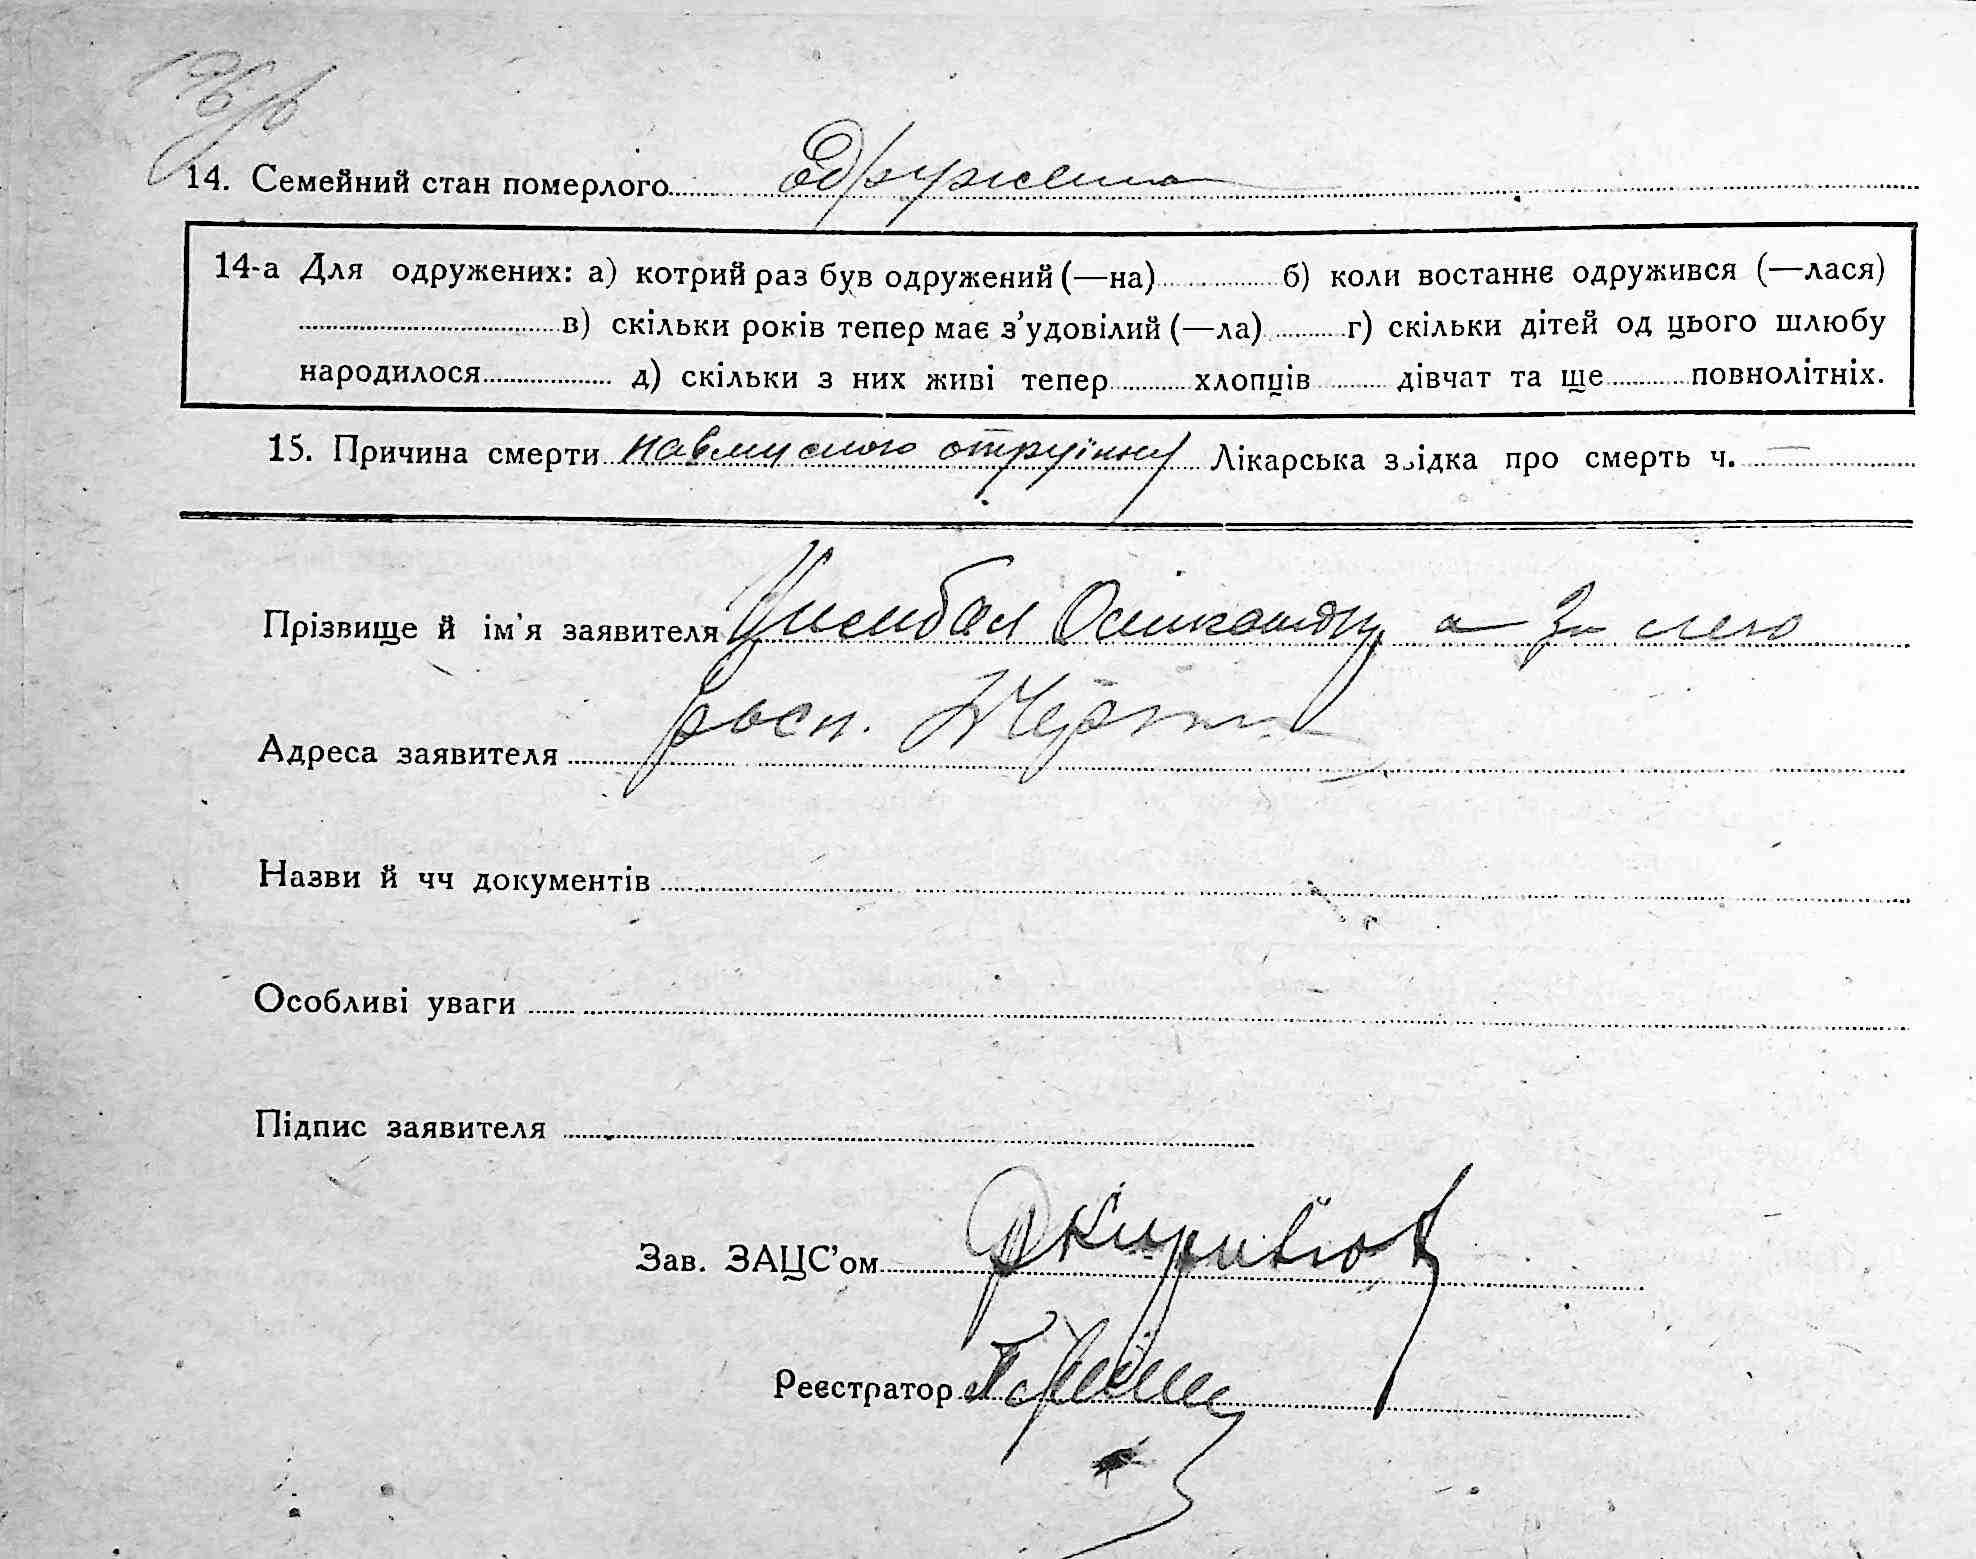 14. Семейний стан померлого одружена
14-а Для одружених: а) котрий раз був одружений (—на) б) коли востаннє одружився (—лася)
в) скільки років тепер має з’удовілий (—ла) г) скільки дітей од цього шлюбу
народилося д) скільки з них живі тепер хлопців дівчат та ще повнолітніх.
15. Причина смерти навмисного отруїння Лікарська звідка про смерть ч. —
Прізвище й ім'я заявителя Цимбал а за него
Адреса заявителя росп.
Назви й чч документів
Особливі уваги
Підпис заявителя
Зав. ЗАЦС’ом
Реєстратор